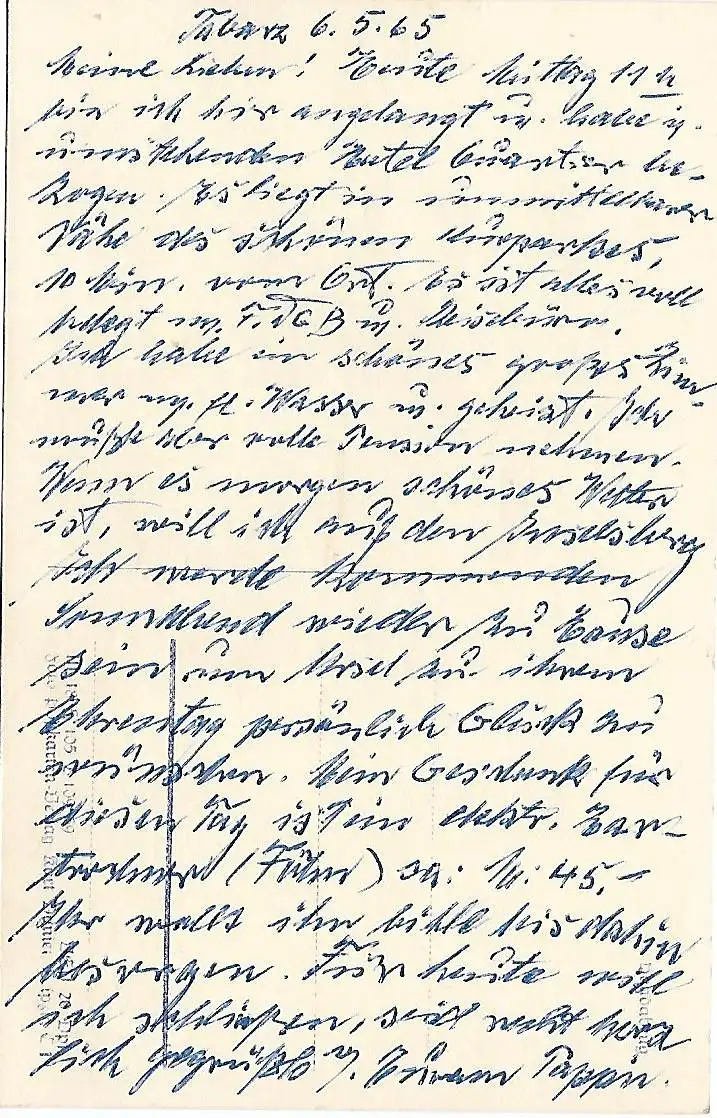 Tabarz 6.5.65
Meine Lieben! Heute Mittag 11 h
bin ich hir angelangt u. habe i.
umstehenden Hotel Quartier be-
zogen. Es liegt in unmittelbarer
Nähe des schönen Kurparkes,
10 Min. vom Ort. Es ist alles voll
belegt m. F.D.G.B u. Reisebüro.
Ich habe ein schönes großes Zim-
mer m. fl. Wasser u. geheizt. Ich
mußte aber volle Pension nehmen.
Wenn es morgen schönes Wetter
ist, will ich auf den Inselsberg
Ich werde kommenden
Sonnabend wieder zu Hause
sein um Ursel zu ihrem
Ehrentag persönlich Glück zu
wünschen. Mein Geschenk für
diesen Tag ist ein elektr. Haar-
trockner (Föhn) ca: M: 45,-
Ihr wollt ihn bitte bis dahin
besorgen. Für heute will
ich schließen, seid recht herz
lich gegrüßt v. Eurem Pappa.